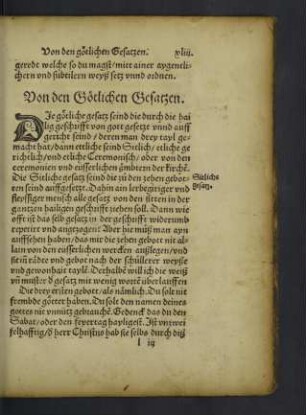 Von den götlichen Gesatzen. xliij.
geredt welche so du magst/ mitt ainer aygentli-
chern vnd subtilern weyß setz vnnd ordnen.
Von den Götlichen Gesatzen.
DJe götliche gesatz seind die durch die hai
lig geschrifft von gott gesetzt vnnd auff
gericht seind / deren man drey tayl ge-
macht hat/ dann ettliche seind Sitlich/ etliche ge
richtlich/ vnd etliche Ceremonisch / oder von den
ceremonien vnd eüsserlichen ämbtern der kirchẽ.
Die Sitliche gesatz seind die in den zehen gebot-
ten seind außgesetzt. Dahin ain lerbegiriger vnd
fleyssiger mensch alle gesatz von den sitten in der
gantzen hailigen geschrifft ziehen soll. Dann wie
offt ist das selb gesatz in der geschrifft widerumb
repetirt vnd angezogen? Aber hie můß man ayn
auffsehen haben / das mir die zehen gebott nit al-
lain von den eüsserlichen wercken außlegen/ vnd
sein rädte vnd gebot nach der schůllerer weyße
vnd gewonhait taylẽ. Derhalbẽ will ich die weiß
vñ muster d gesatz mit wenig wortẽ überlauffen
Die drey ersten gebott / als nämlich. Du solt nit
frembde götter haben. Du solt den namen deines
gottes nit vnnütz gebrauchẽ. Gedenck das du den
Sabat/ oder den feyertag hayligest. Jst vnzwei
felhafftig/ d herr Christus hab sie selbs durch diß
Sitliche
Gesatz.
l iij